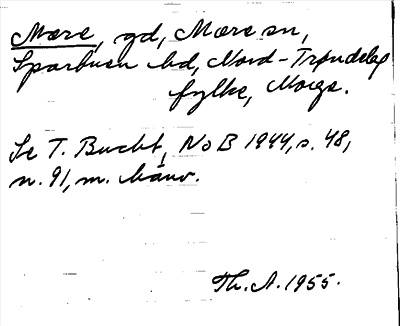 Mære, gd, Mære sn,
Sparbuen hd, Nord-Trøndelag
fylke, Norge.
Se T. Bucht, NoB 1944, s. 48,
n. 91, m. hänv.
Th. A. 1955.